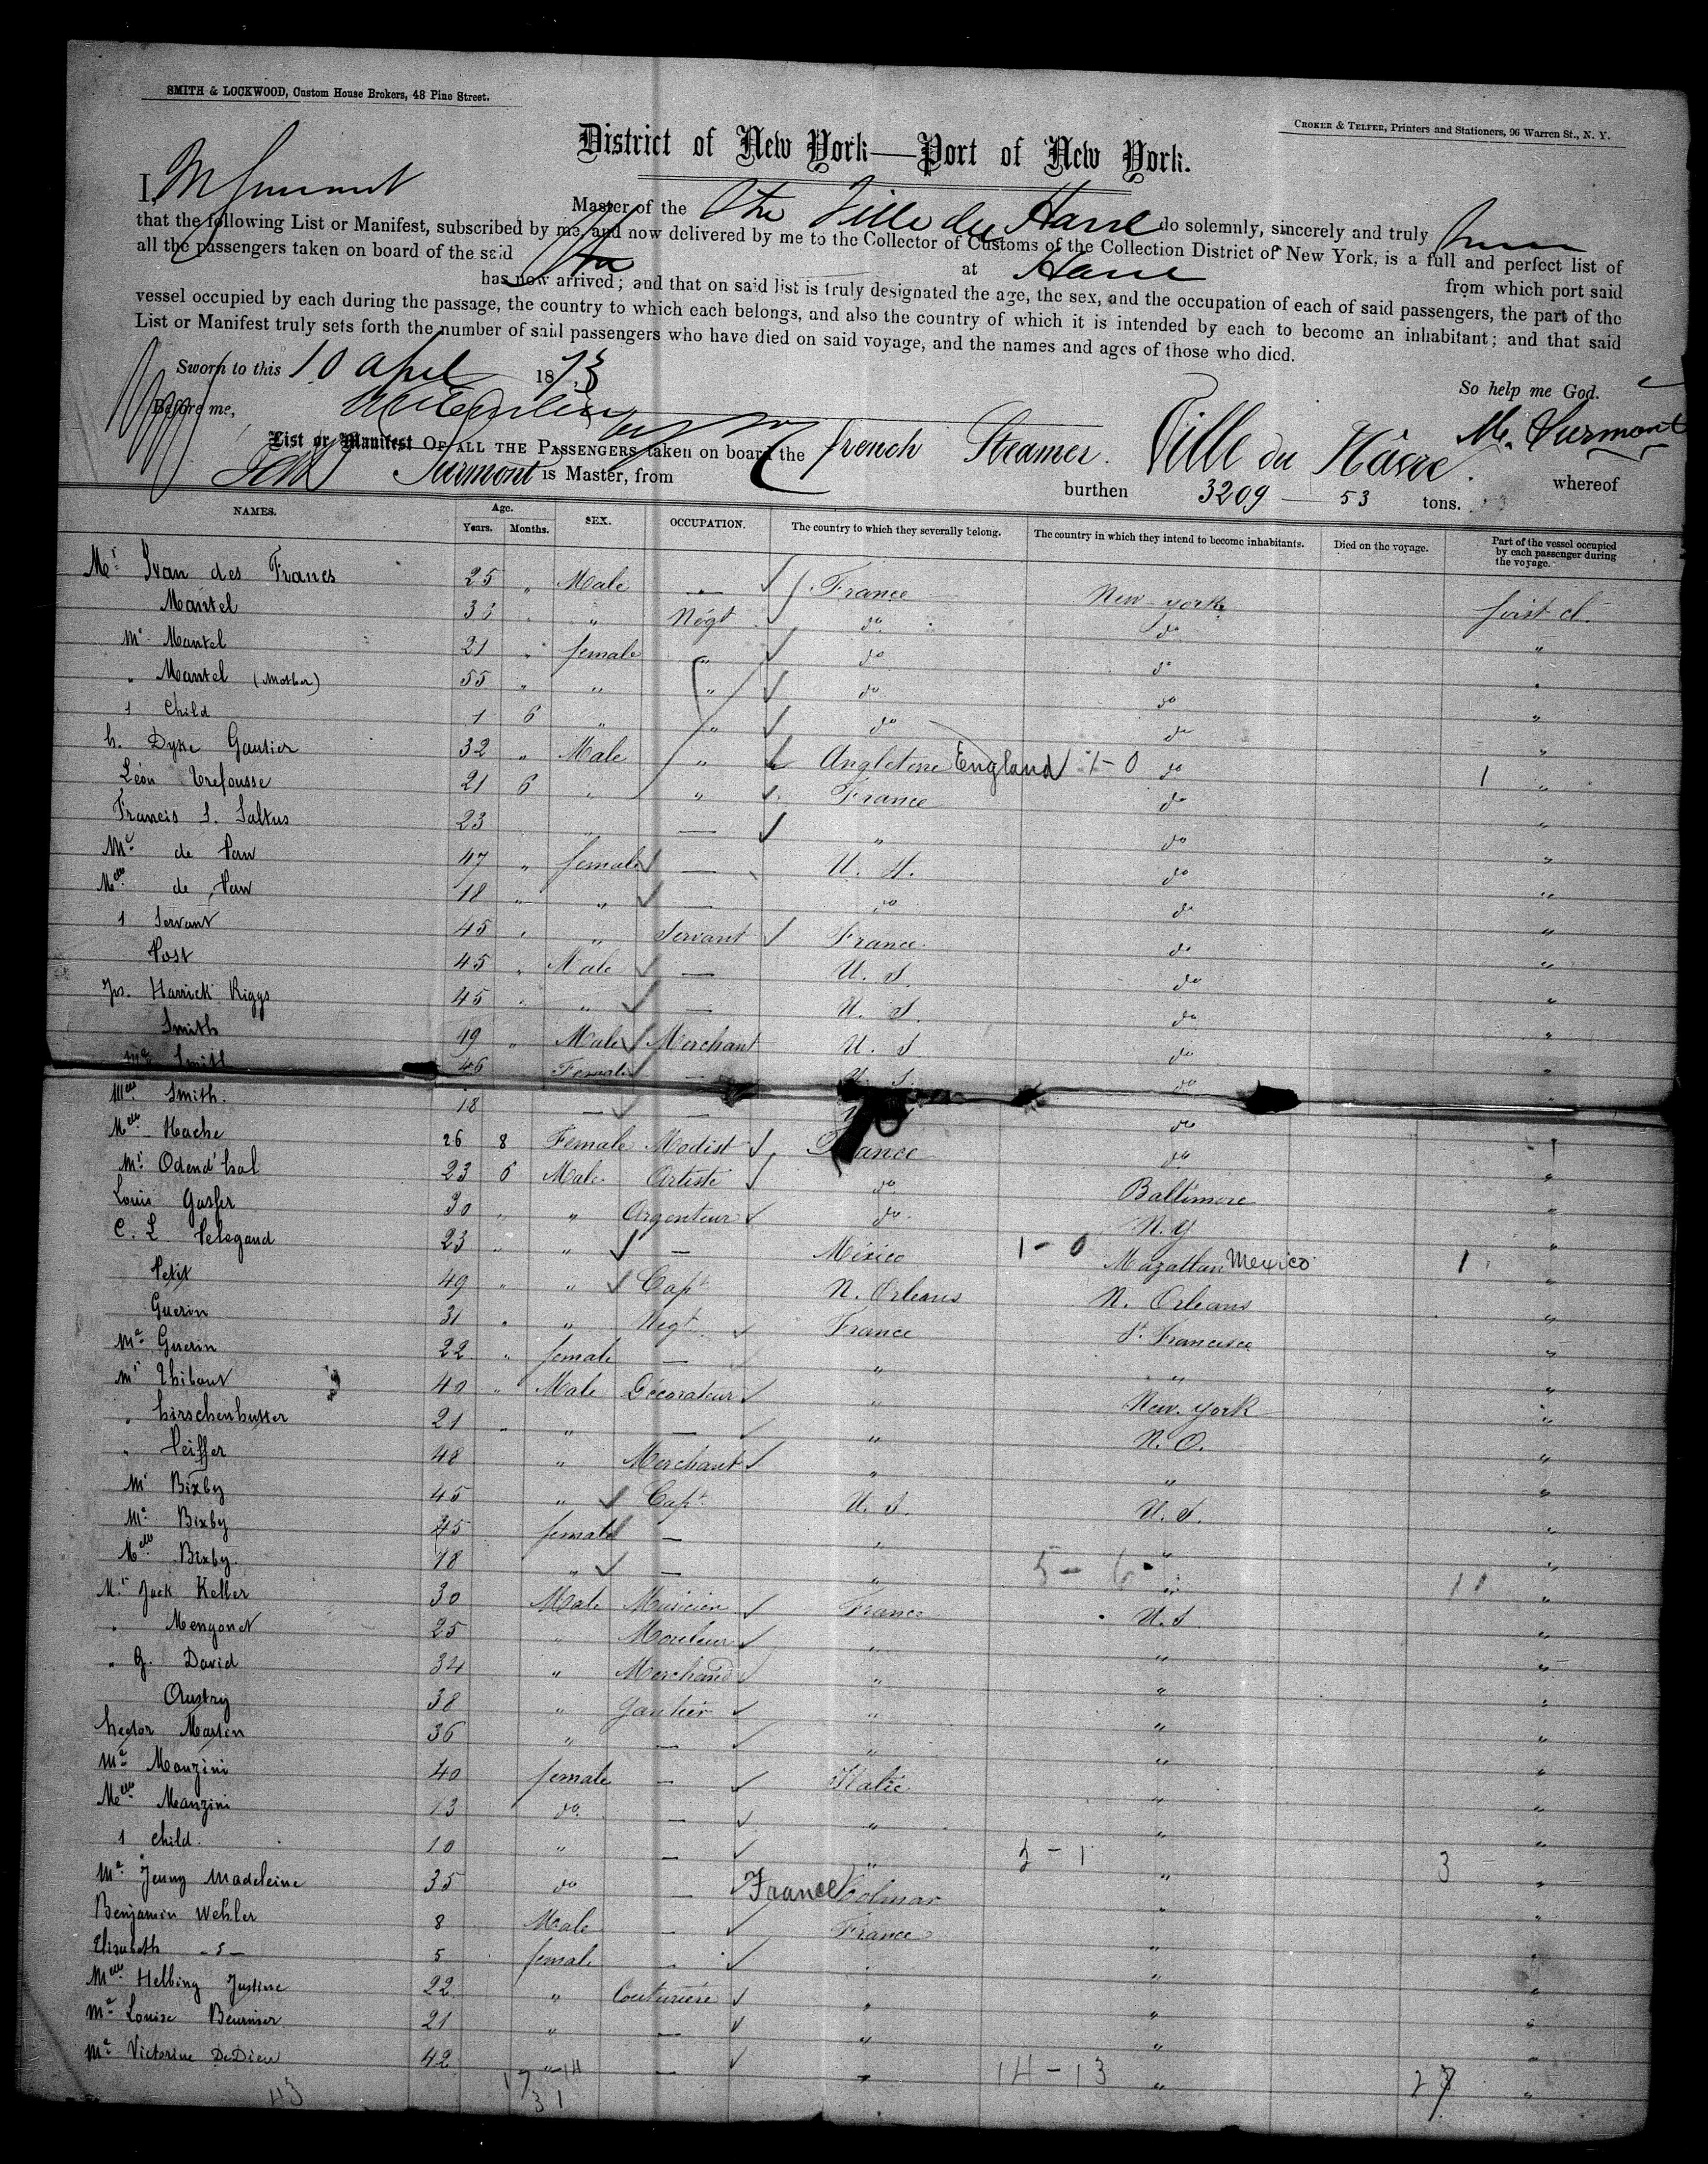 SMITH & LOCKWOOD, Custom House Brokers, 48 Pine Street.
CROKER & TELFER, Printers and Stationers, 96 Warren St., N. Y.
District of New York—Port of New York.
I, Master of the Ville du Havre do solemnly, sincerely and truly
that the following List or Manifest, subscribed by me, and now delivered by me to the Collector of Customs of the Collection District of New York, is a full and perfect list of
all the passengers taken on board of the said at Havre from which port said
has now arrived; and that on said list is truly designated the age, the sex, and the occupation of each of said passengers, the part of the
vessel occupied by each during the passage, the country to which each belongs, and also the country of which it is intended by each to become an inhabitant; and that said
List or Manifest truly sets forth the number of said passengers who have died on said voyage, and the names and ages of those who died.
Sworn to this 10 April 1873
So help me God.
Before me,
M. Surmont
List or Manifest OF ALL THE PASSENGERS taken on board the french Steamer. Ville du Hâvre. whereof
Surmont is Master, from burthen 3209 — 53 tons.
NAMES. Age. Years. Months. SEX. OCCUPATION. The country to which they severally belong. The country in which they intend to become inhabitants. Died on the voyage. Part of the vessel occupied by each passenger during the voyage.
Mr Ivan des Francs 25 " Male — France New york first cl.
Mantel 38 " " Négt do do "
Me Mantel 21 " female " do do "
" Mantel (Mother) 55 " " " do do "
1 Child 1 6 " " do do "
h. Dyke Gautier 32 " Male " Angleterre England 1-0 do 1 "
Léon Trefousse 21 6 " " France do "
Francis S. Saltus 23 " — " do "
Me de Pau 47 " female — U. S. do "
Melle de Pau 18 " " — do do "
1 Servant 45 " " Servant France do "
Post 45 " Male — U. S. do "
Js. Harrick Riggs 45 " " — U. S. do "
Smith 49 " Male Merchant U. S do "
Me Smith 46 Female — U. S. do "
Melle Smith. 18 — — do "
Melle Hache 26 8 Female Modist France do "
Mr Odend'hal 23 6 Male Artiste do Baltimore "
Louis Gasfer 30 " " Argenteur do N. Y "
C. L. Pelegaud 23 " " — Mexico 1-0 Mazatlan Mexico 1 "
Petit 49 " " Capt N. Orleans N. Orleans "
Guerin 31 " " Negt France St. Francisco "
Me Guerin 22 " female — " " "
Mr Thibaut 40 " Male Décorateur " New. york "
" hirschenhutter 21 " " — " N. O. "
" Peiffer 48 " Merchant " " "
Mr Bixby 45 " Capt U. S. U. S. "
Me Bixby 45 female — " " "
Melle Bixby. 18 " — " 5-6 " 11 "
Mr Jack Keller 30 Male Musicien France U. S "
" Mengonet 25 " Mouleur " " "
" G. David 34 " Merchand " " "
Austry 38 " Gantier " " "
hector Martin 36 " — " " "
Me Manzini 40 female — Italie " "
Melle Manzini 13 do — " " "
1 child. 10 " — " 2-1 " 3 "
Me Jenny Madeleine 35 do — France Colmar " "
Benjamin Wehler 8 Male — France " "
Elizabeth -s- 5 female — " " "
Melle Helbing Justine 22 " Couturiere " " "
Me Louise Beurnier 21 " — " " "
Me Victorine DeDieu 42 " — " 14-13 " 27 "
43 17-14
31